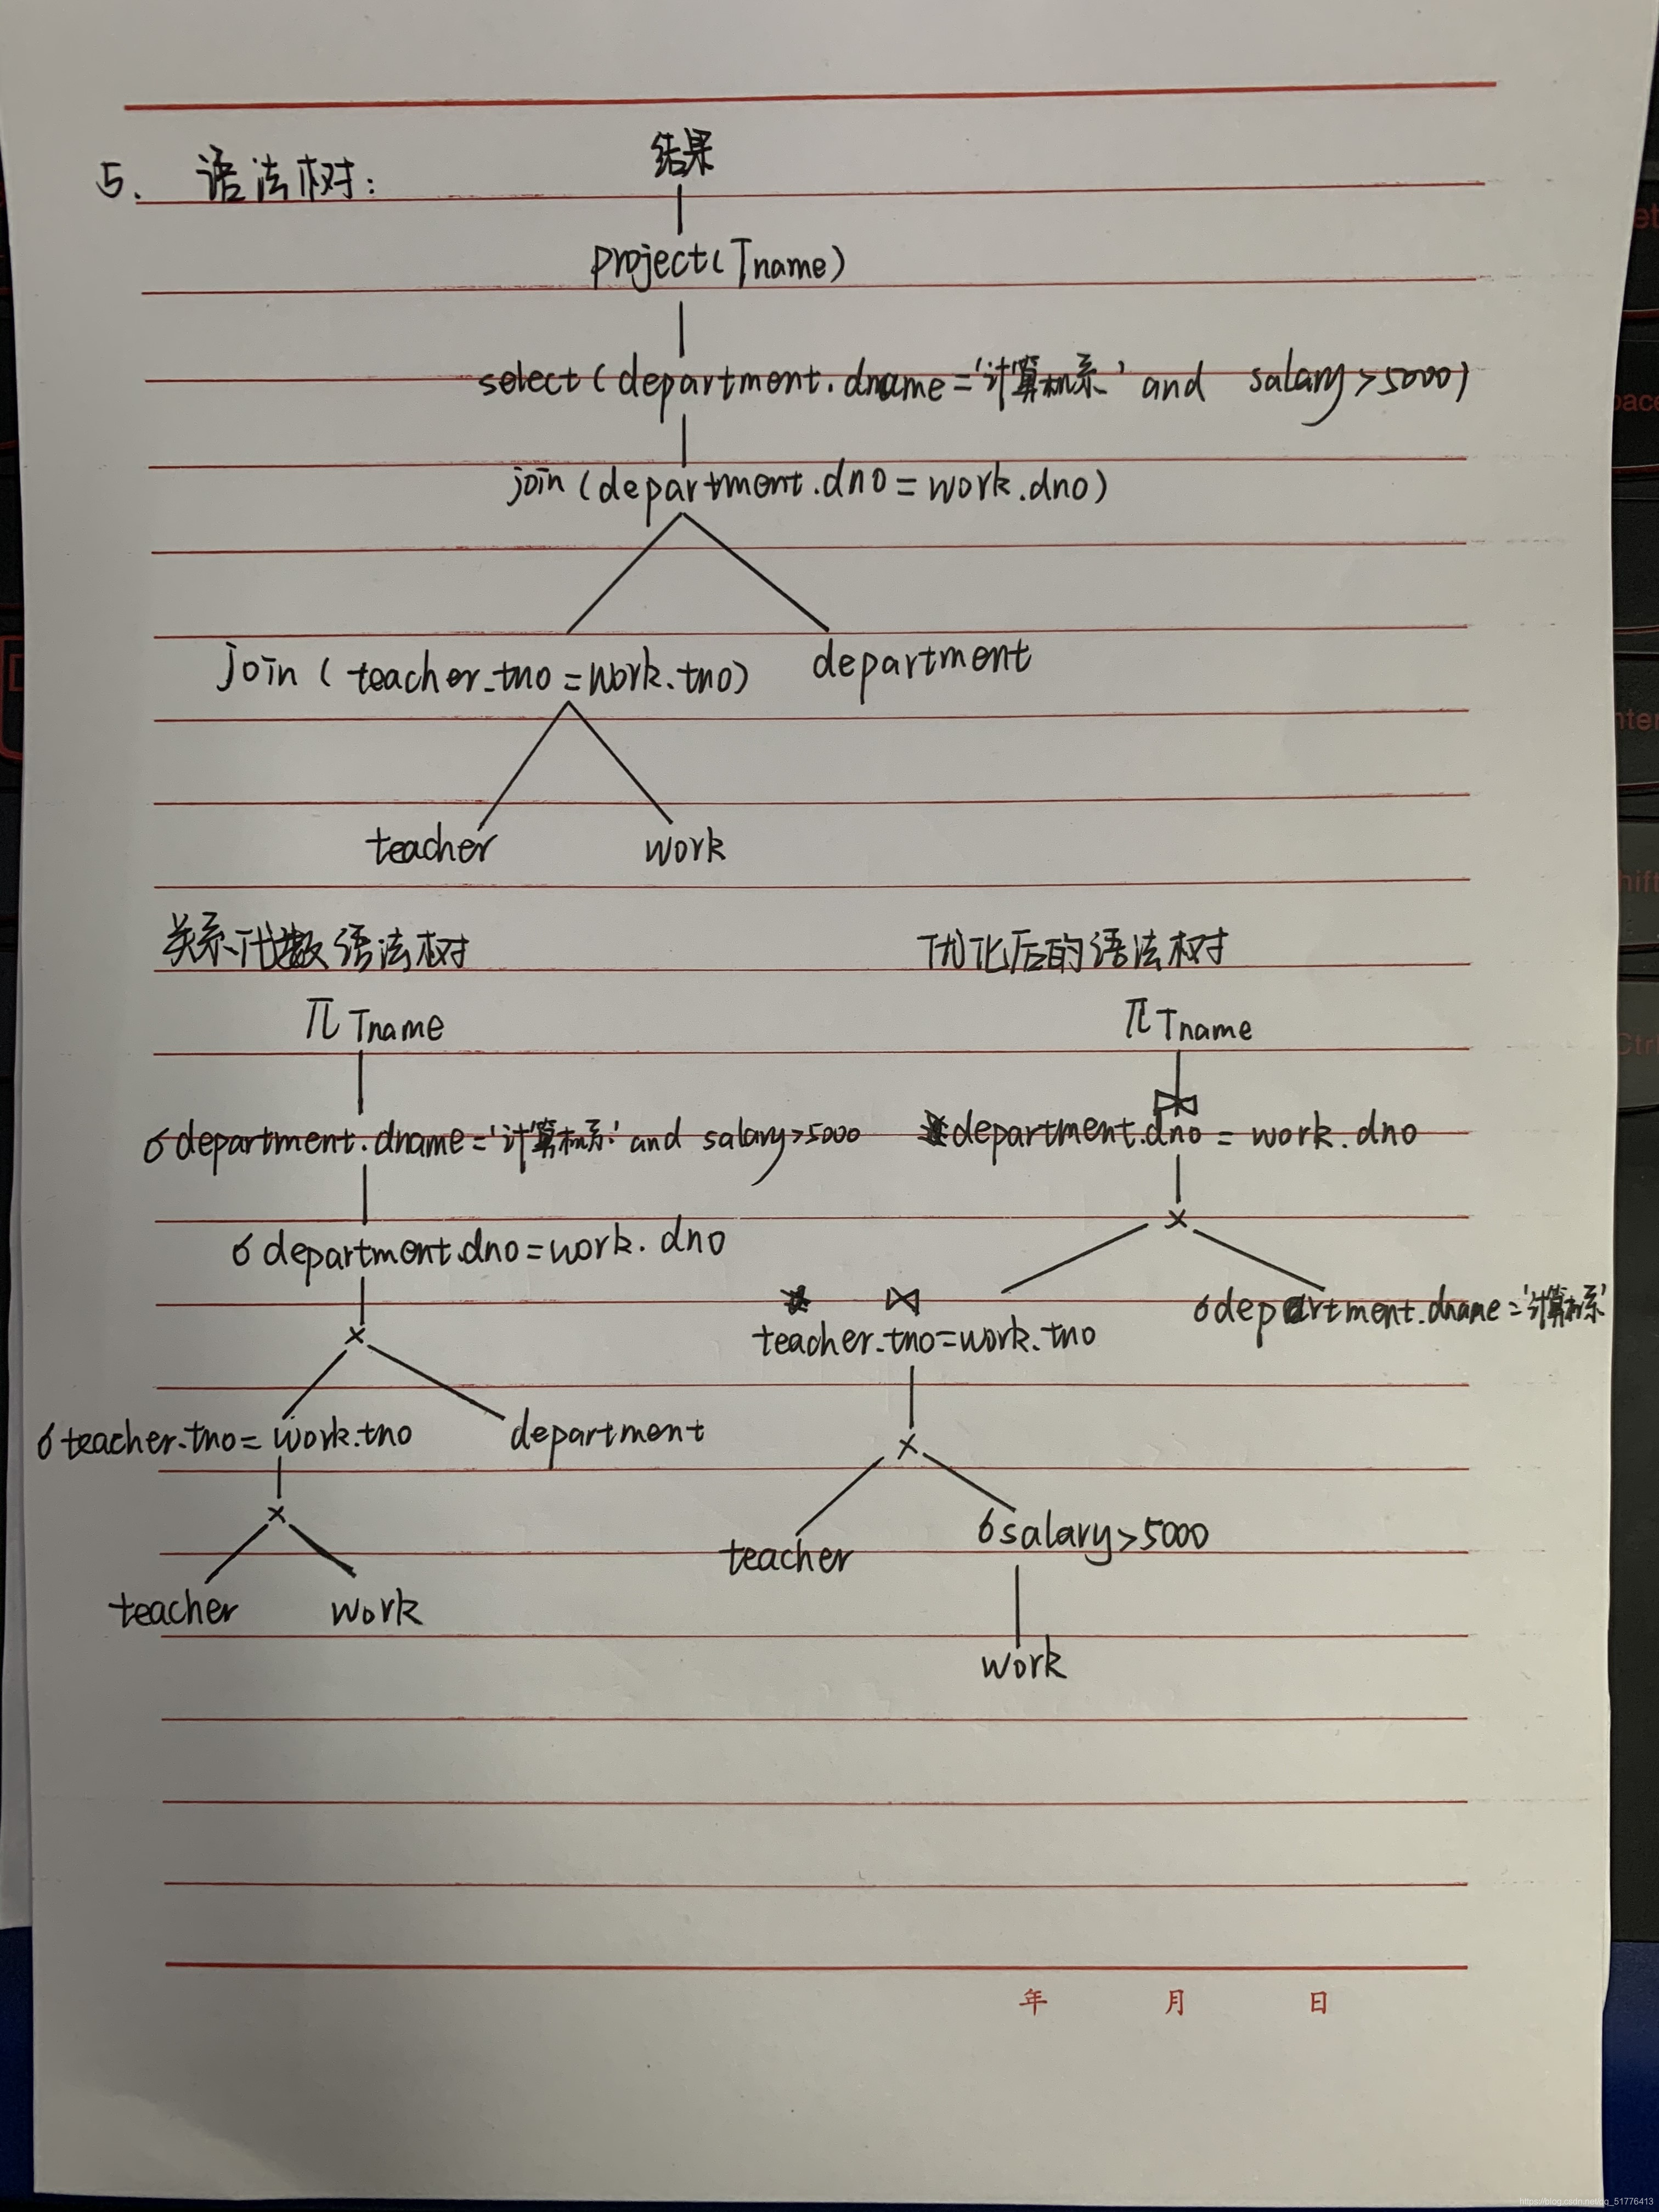 结果
5. 语法树:
project(Tname)
select(department.dname='计算机系' and salary>5000)
join(department.dno=work.dno)
join(teacher.tno=work.tno) department
teacher work
关系代数语法树 优化后的语法树
π Tname π Tname
⋈
σ department.dname='计算机系' and salary>5000 department.dno=work.dno
×
σ department.dno=work.dno
⋈ σ department.dname='计算机系'
× teacher.tno=work.tno
σ teacher.tno=work.tno department ×
× teacher σ salary>5000
teacher work
work
年 月 日
https://blog.csdn.net/qq_51776413